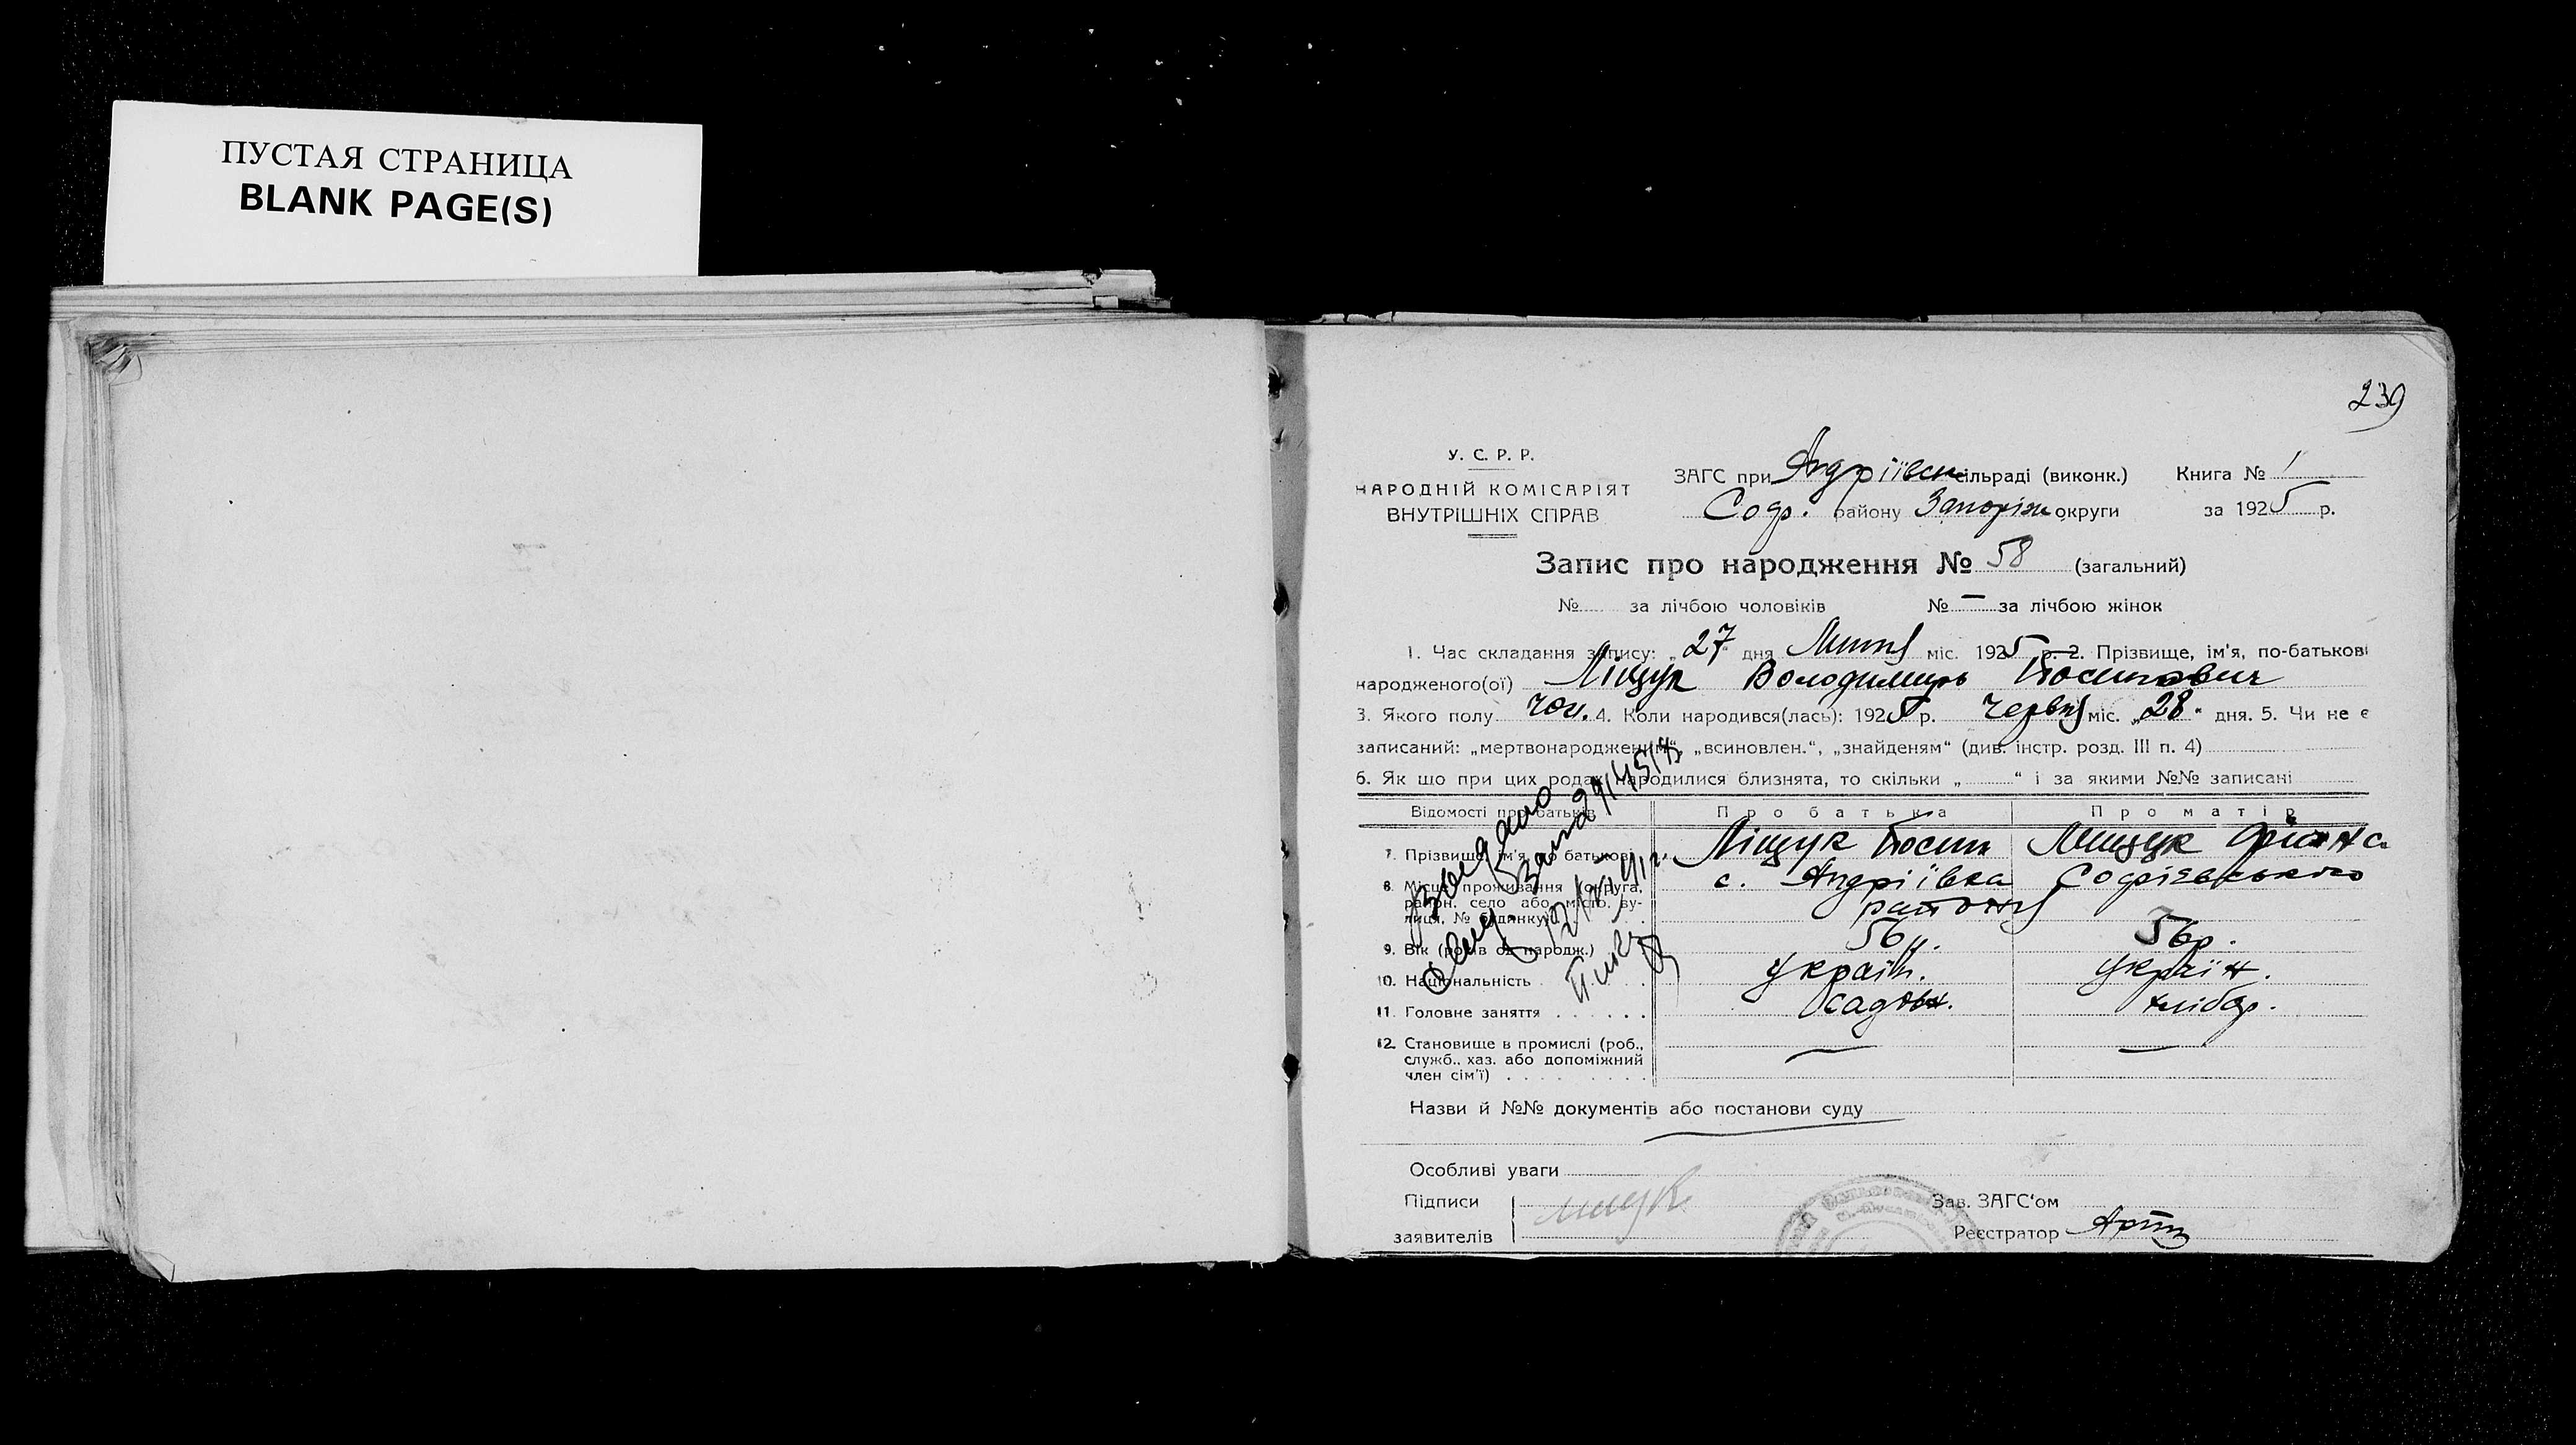 ПУСТАЯ СТРАНИЦА
BLANK PAGE(S)
239
У. С. Р. Р.
НАРОДНІЙ КОМІСАРІЯТ
ВНУТРІШНІХ СПРАВ
ЗАГС при Андріївск сільраді (виконк.) Книга № 1
Соф. району Запоріж округи за 1925 р.
Запис про народження № 58 (загальний)
№ за лічбою чоловіків № — за лічбою жінок
1. Час складання запису: „27" дня Липня міс. 1925 р. 2. Прізвище, ім'я, по-батькові
народженого(ої) Міщук Володимирь Йосипович
3. Якого полу чол. 4. Коли народився(лась): 1925 р. червня міс. „28" дня. 5. Чи не є
записаний: „мертвонародженим", „всиновлен.", „знайденям" (див. інстр. розд. III п. 4)
6. Як що при цих родах народилися близнята, то скільки „ " і за якими №№ записані
Відомості про батьків Про батька Про матір
7. Прізвище, ім'я, по батькові Міщук Йосип Мищук
8. Місце проживання (округа, район, село або місто, вулиця, № будинку) с. Андріївка Софіевського
району
9. Вік (років од народж.) 56 р. 36 р.
10. Національність Україн. Україн.
11. Головне заняття садовн. хлібор.
12. Становище в промислі (роб.,
служб., хаз. або допоміжний
член сім'ї)
Назви й №№ документів або постанови суду
Особливі уваги
Підписи Мищук Зав. ЗАГС'ом
заявителів Реєстратор